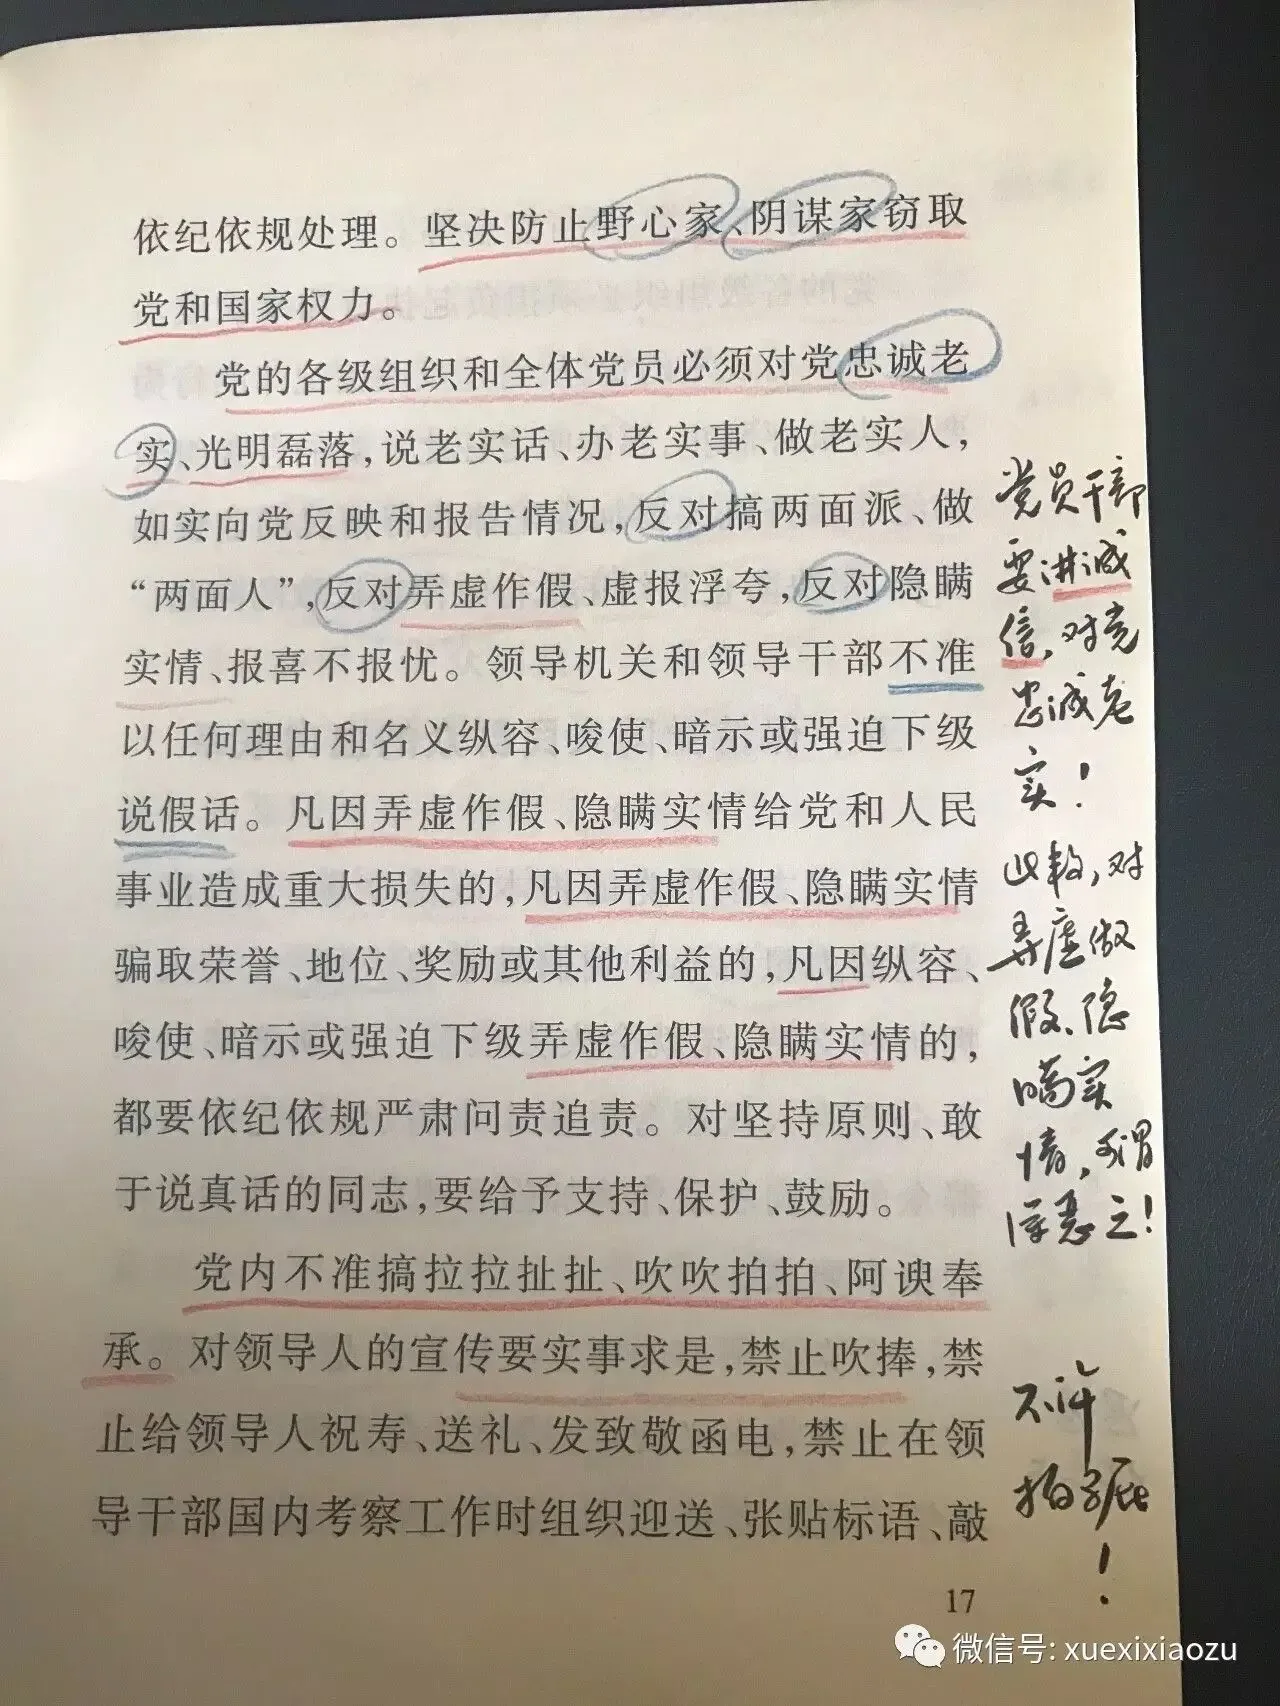 依纪依规处理。坚决防止野心家、阴谋家窃取
党和国家权力。
党的各级组织和全体党员必须对党忠诚老
实、光明磊落，说老实话、办老实事、做老实人，
如实向党反映和报告情况，反对搞两面派、做
“两面人”，反对弄虚作假、虚报浮夸，反对隐瞒
实情、报喜不报忧。领导机关和领导干部不准
以任何理由和名义纵容、唆使、暗示或强迫下级
说假话。凡因弄虚作假、隐瞒实情给党和人民
事业造成重大损失的，凡因弄虚作假、隐瞒实情
骗取荣誉、地位、奖励或其他利益的，凡因纵容、
唆使、暗示或强迫下级弄虚作假、隐瞒实情的，
都要依纪依规严肃问责追责。对坚持原则、敢
于说真话的同志，要给予支持、保护、鼓励。
党内不准搞拉拉扯扯、吹吹拍拍、阿谀奉
承。对领导人的宣传要实事求是，禁止吹捧，禁
止给领导人祝寿、送礼、发致敬函电，禁止在领
导干部国内考察工作时组织迎送、张贴标语、敲
17
党员干部
要讲诚
信，对党
忠诚老
实！
对
弄虚做
假、隐
瞒实
情，可谓
深恶之！
不许
拍马屁
！
微信号: xuexixiaozu